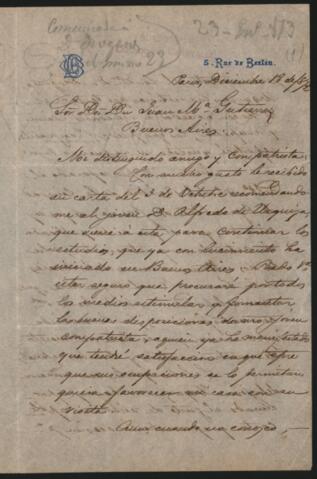 Comunicada
5 Rue de Berlin.
Paris, Diciembre 12 de
Sor Dor Dn Juan Ma Gutierrez
Buenos Aires
Mi distinguido amigo y Compatriota
Con mucho gusto he recibido
su carta del 3 de Octubre recomendando
me al joven D. Alfredo de Urquiza,
que viene a esta para continuar los
estudios, que ya con lucimiento ha
iniciado en Buenos Aires
estar seguro que procuraré por todos
los medios estimular y fomentar
las buenas disposiciones de
compatriota, a quien ya he manifestado
que tendré satisfaccion en que
que sus ocupaciones se lo permitan
quiera favorecer mi casa con su
visita.
Aun cuando no conosco,